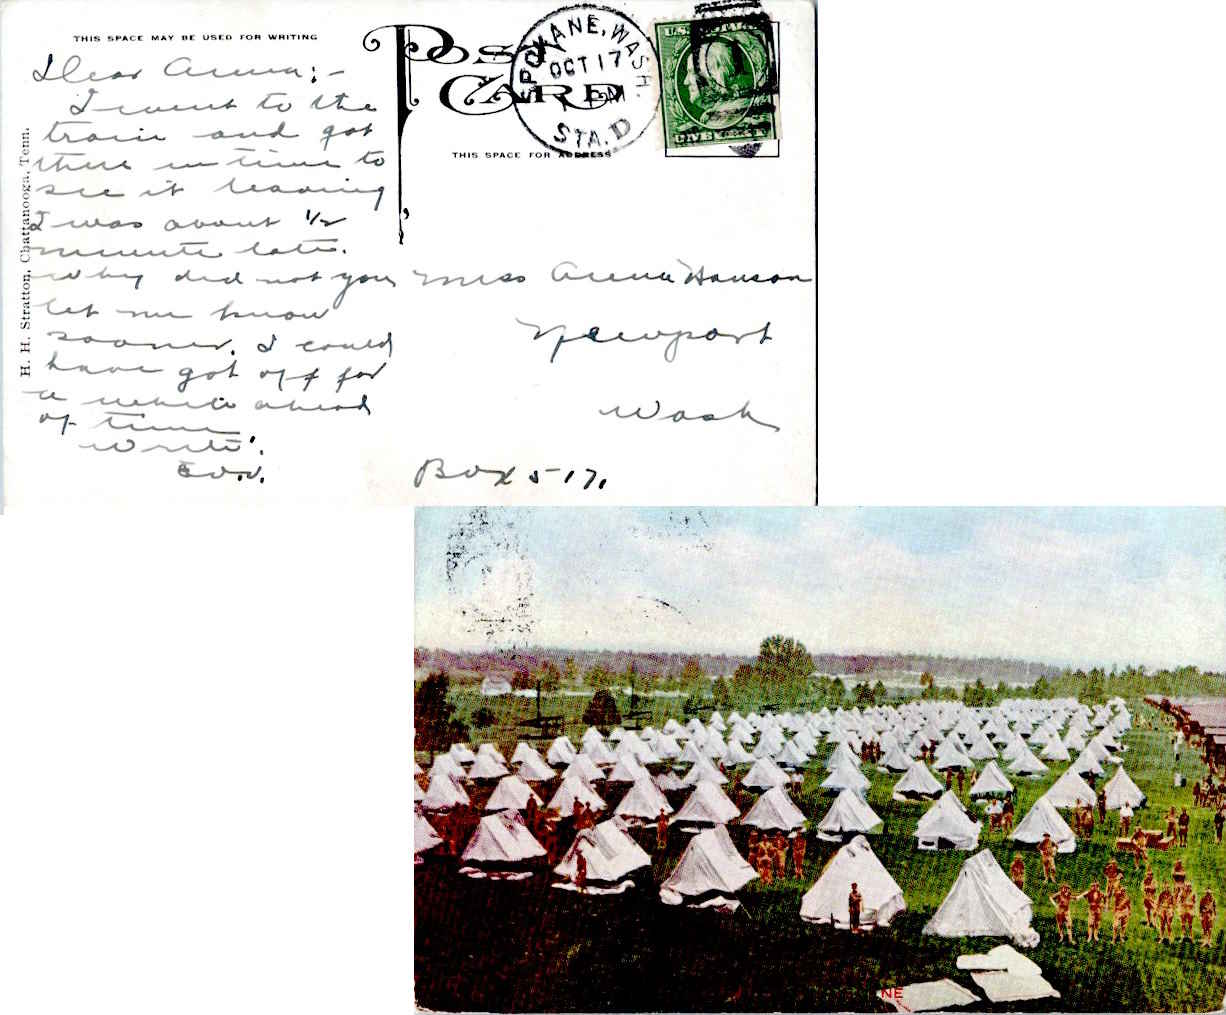 THIS SPACE MAY BE USED FOR WRITING
POST CARD
SPOKANE, WASH.
OCT 17
M
STA. D
THIS SPACE FOR ADDRESS
H. H. Stratton, Chattanooga, Tenn.
Dear Anna:-
I went to the
train and got
there in time to
see it leaving
I was about 1/2
minute late.
why did not you
let me know
sooner. I could
have got off for
a while ahead
of time
Write.
Miss Anna Hanson
Newport
Wash
Box 517.
NE